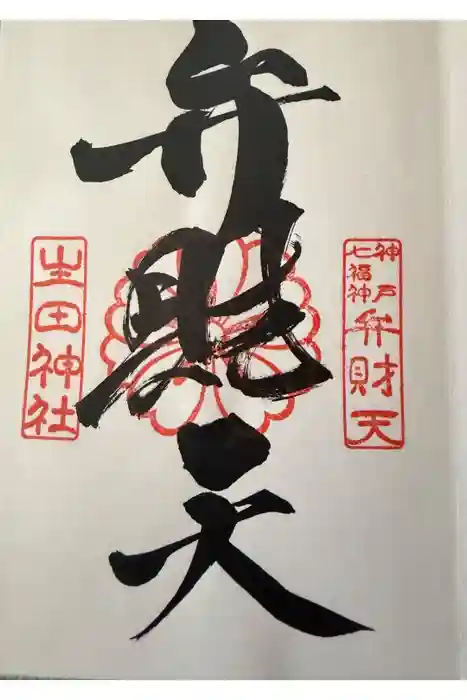 神戸
七福神
弁財天
弁財天
生田神社